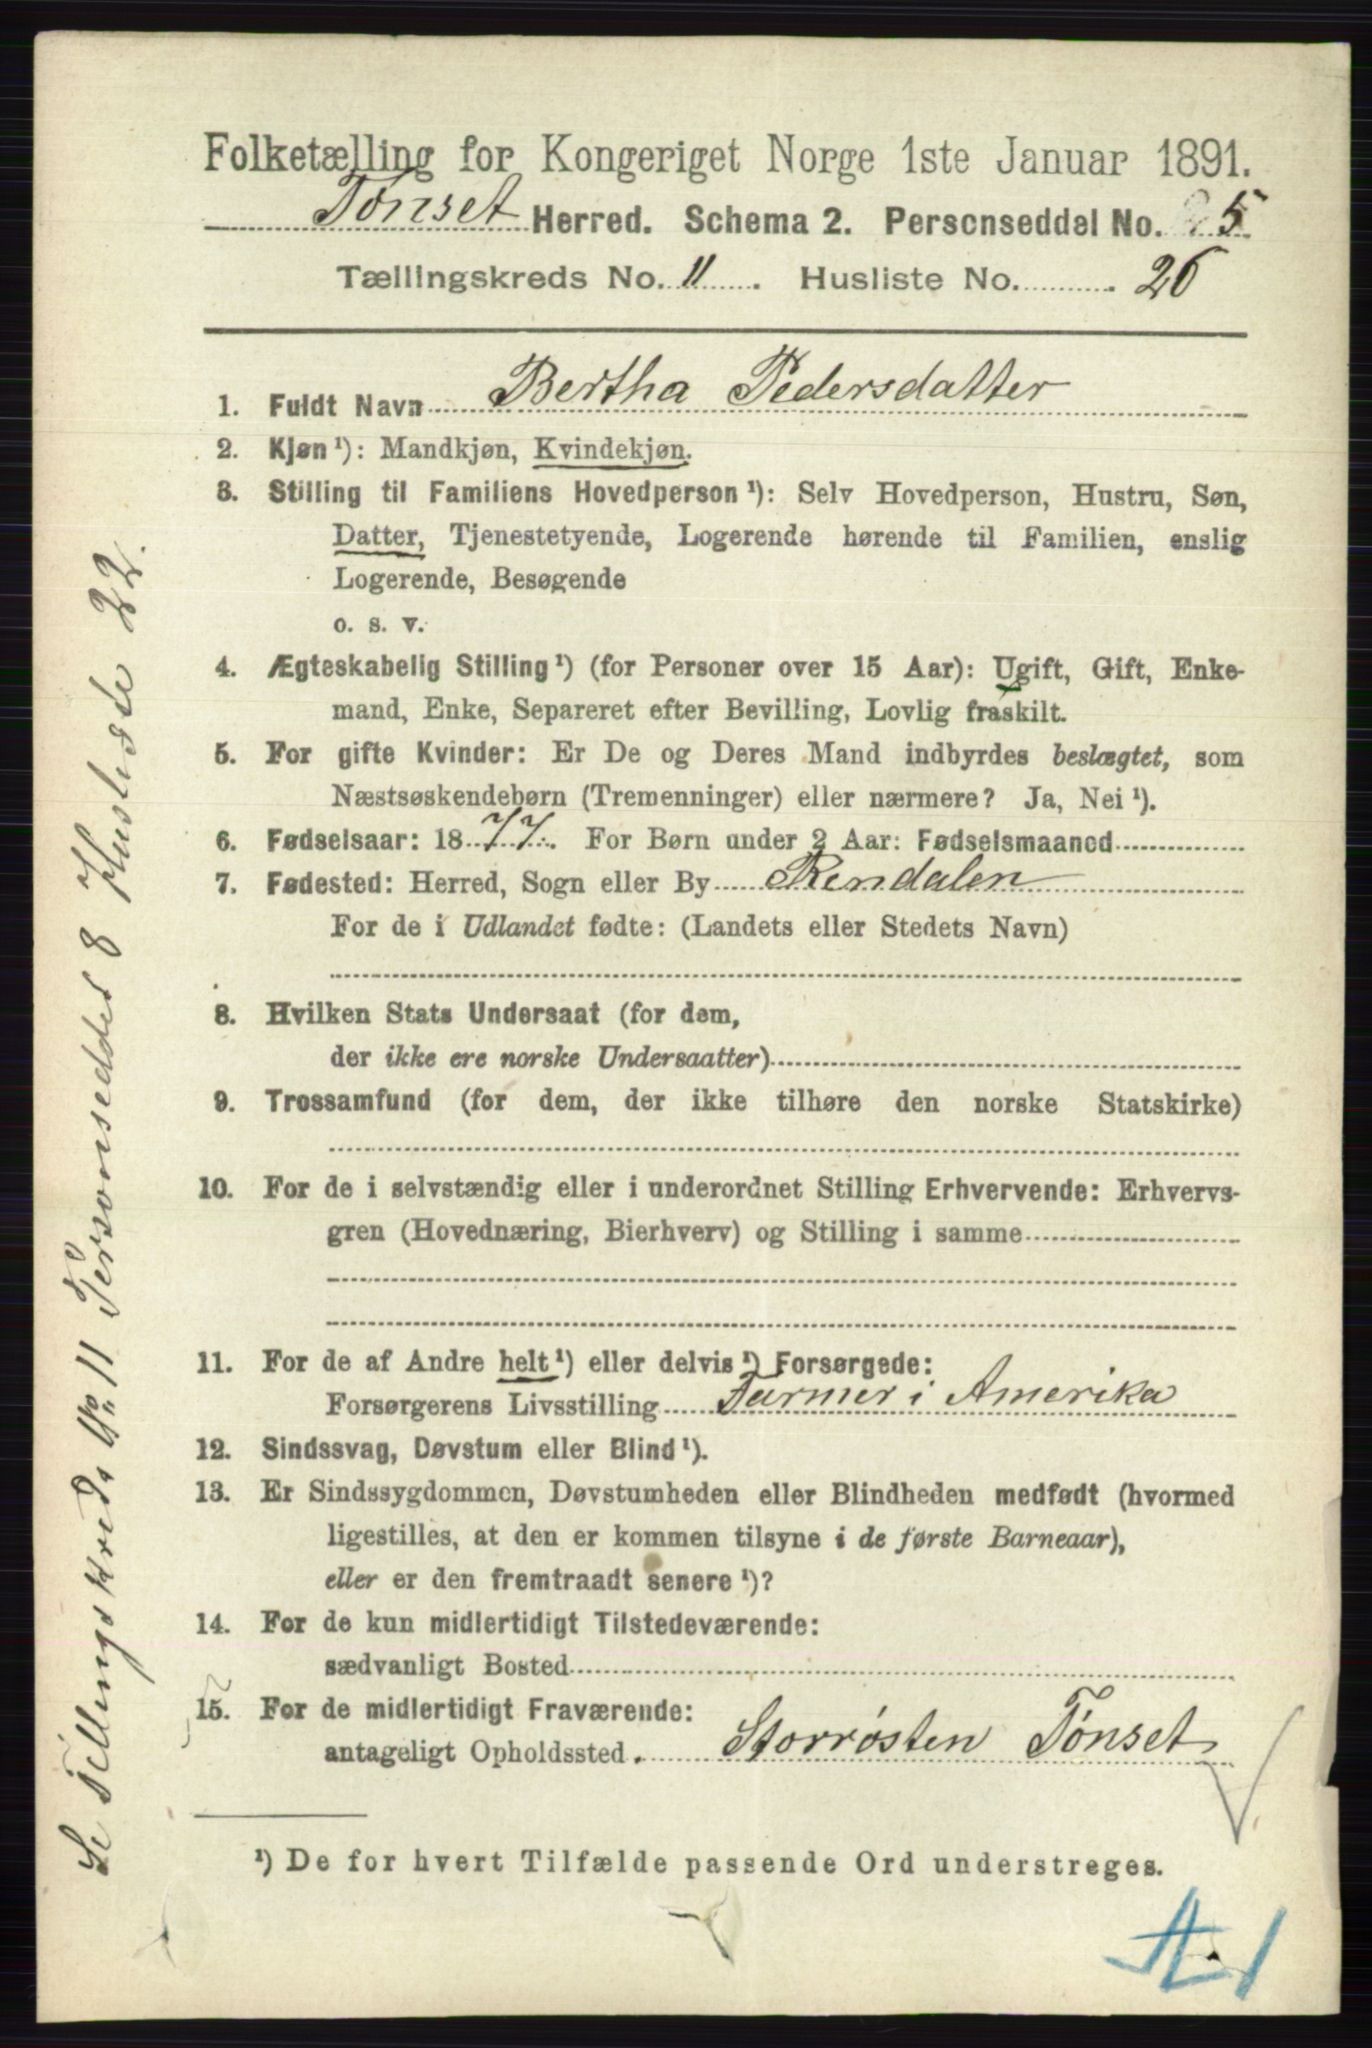 Folketælling for Kongeriget Norge 1ste Januar 1891.
Tønset Herred. Schema 2. Personseddel No. 5
Tællingskreds No. 11. Husliste No. 26
1. Fuldt Navn Bertha Pedersdatter
2. Kjøn¹): Mandkjøn, Kvindekjøn.
3. Stilling til Familiens Hovedperson¹): Selv Hovedperson, Hustru, Søn,
Datter, Tjenestetyende, Logerende hørende til Familien, enslig
Logerende, Besøgende
o. s. v.
4. Ægteskabelig Stilling¹) (for Personer over 15 Aar): Ugift, Gift, Enke-
mand, Enke, Separeret efter Bevilling, Lovlig fraskilt.
5. For gifte Kvinder: Er De og Deres Mand indbyrdes beslægtet, som
Næstsøskendebørn (Tremenninger) eller nærmere? Ja, Nei¹).
6. Fødselsaar: 1877. For Børn under 2 Aar: Fødselsmaaned
7. Fødested: Herred, Sogn eller By Rendalen
For de i Udlandet fødte: (Landets eller Stedets Navn)
8. Hvilken Stats Undersaat (for dem,
der ikke ere norske Undersaatter)
9. Trossamfund (for dem, der ikke tilhøre den norske Statskirke)
10. For de i selvstændig eller i underordnet Stilling Erhvervende: Erhvervs-
gren (Hovednæring, Bierhverv) og Stilling i samme
11. For de af Andre helt¹) eller delvis¹) Forsørgede:
Forsørgerens Livsstilling Farmer i Amerika
12. Sindssvag, Døvstum eller Blind¹).
13. Er Sindssygdommen, Døvstumheden eller Blindheden medfødt (hvormed
ligestilles, at den er kommen tilsyne i de første Barneaar),
eller er den fremtraadt senere¹)?
14. For de kun midlertidigt Tilstedeværende:
sædvanligt Bosted
15. For de midlertidigt Fraværende:
antageligt Opholdssted. Storrøsten Tønset
¹) De for hvert Tilfælde passende Ord understreges.
Se Tellingskreds No. 11 Personseddel 8 Husliste 22.